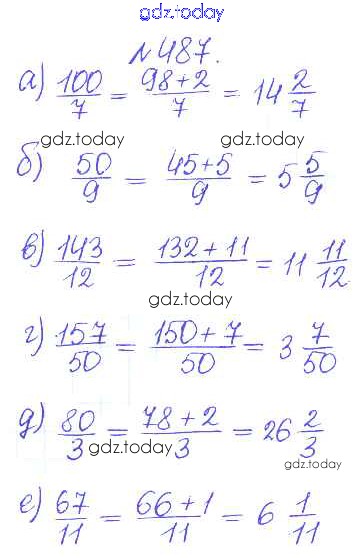 gdz.today
№487.
а) 100/7 = 98+2/7 = 14 2/7
gdz.today
б) 50/9 = 45+5/9 = 5 5/9
gdz.today
в) 143/12 = 132+11/12 = 11 11/12
gdz.today
г) 157/50 = 150+7/50 = 3 7/50
д) 80/3 = 78+2/3 = 26 2/3
gdz.today
gdz.today
е) 67/11 = 66+1/11 = 6 1/11